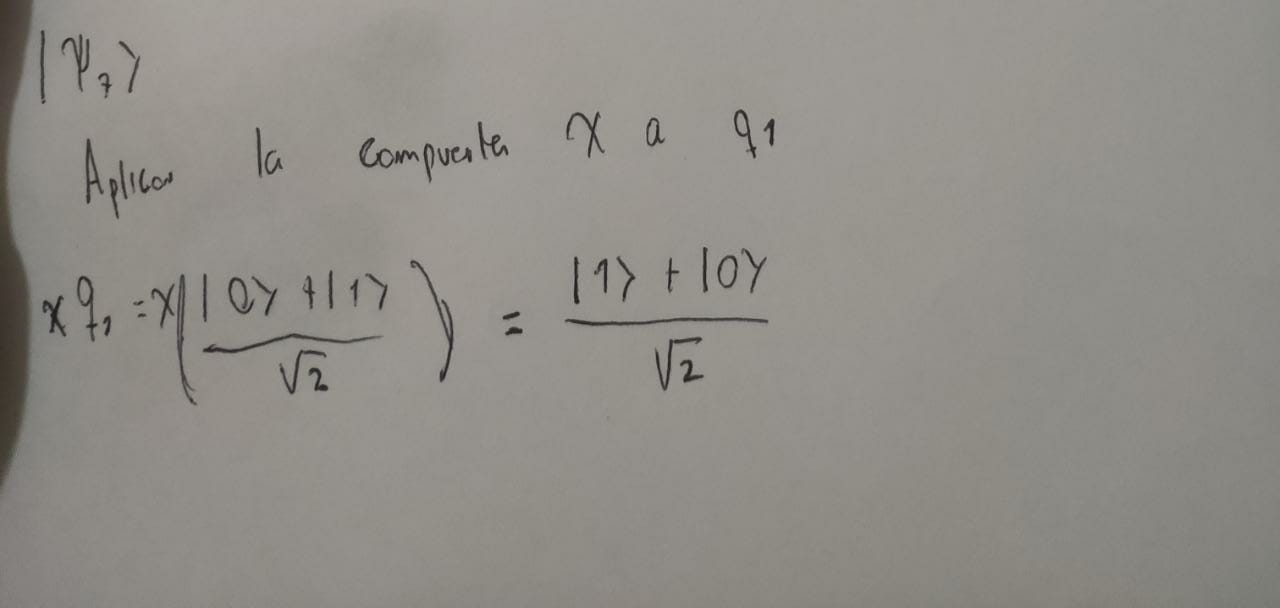 |Ψ₇⟩
Aplicar la compuerta X a q₁
x q₁ = x( (|0⟩ + |1⟩) / √2 ) = (|1⟩ + |0⟩) / √2